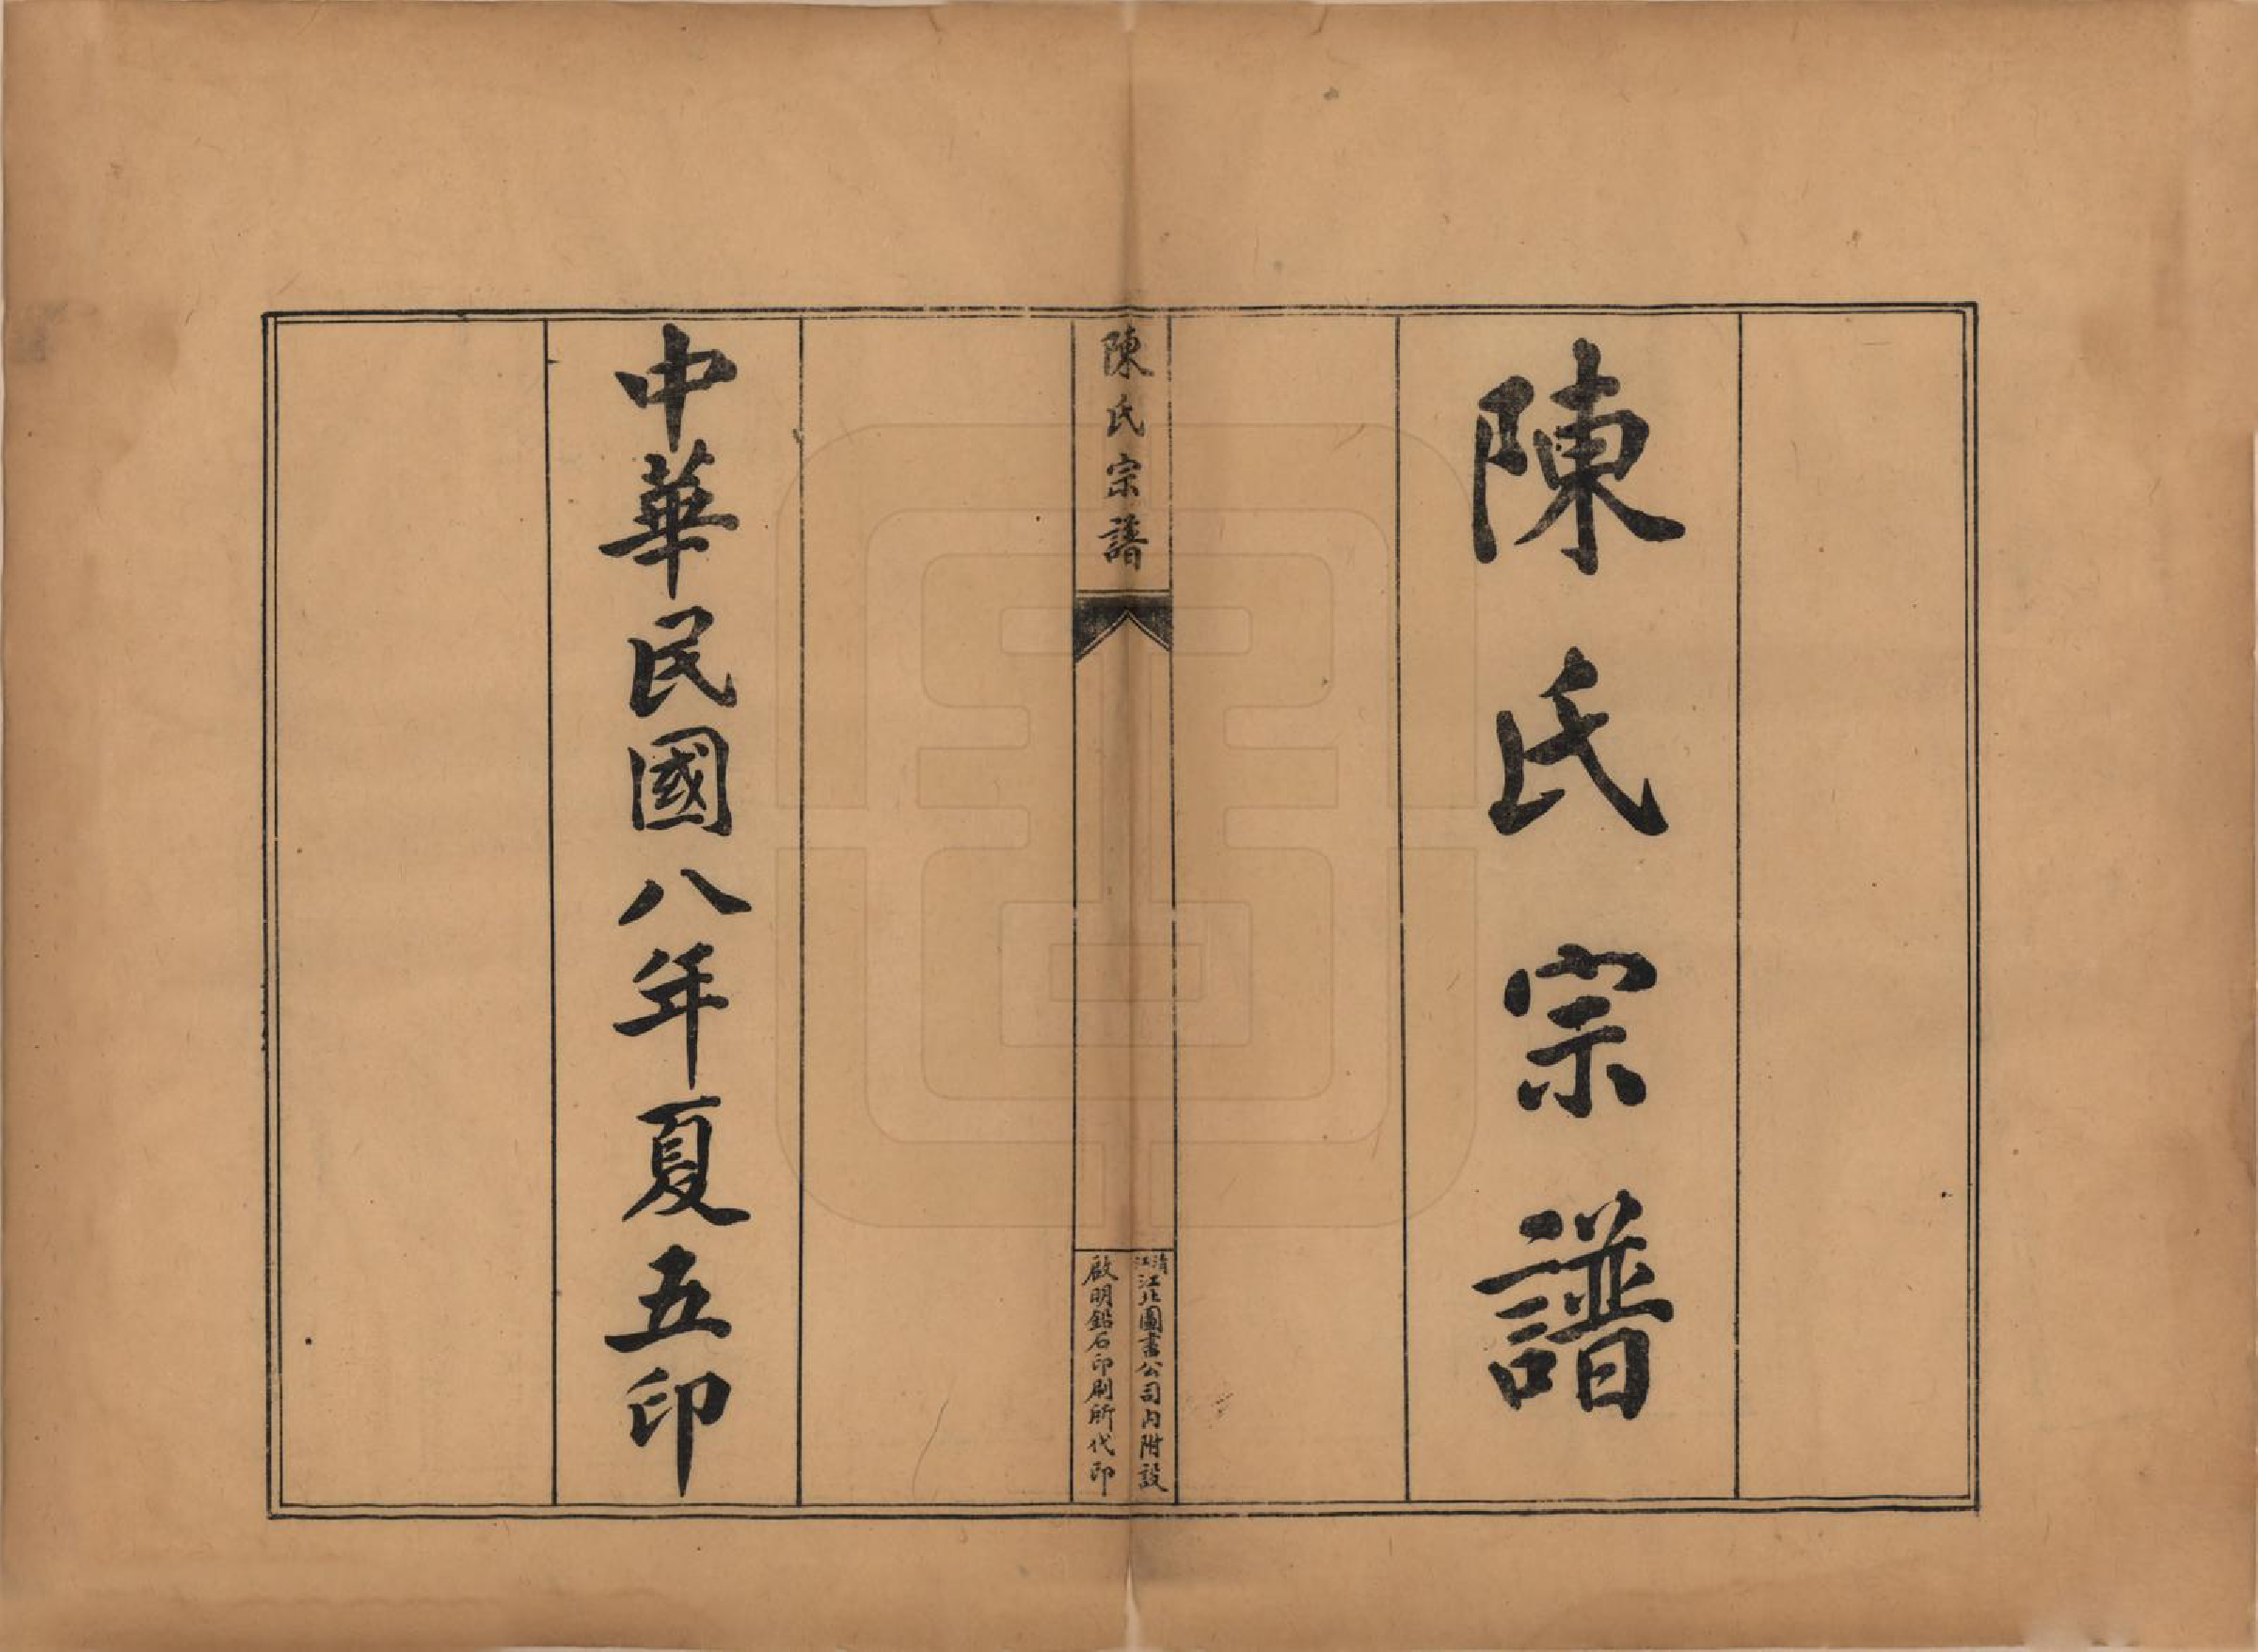 陳氏宗譜
陳氏宗譜
清江江北圖書公司內附設
啟明鉛石印刷所代印
中華民國八年夏五印